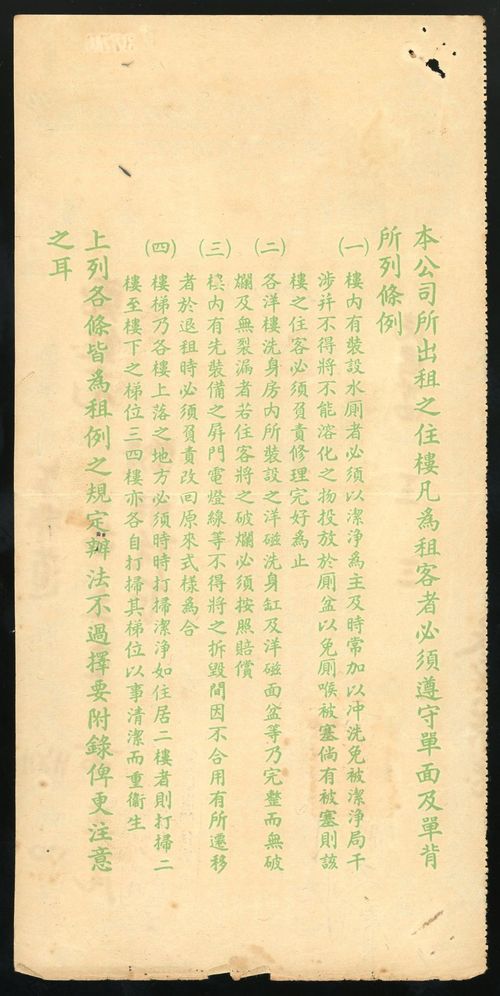 本公司所出租之住樓凡為租客者必須遵守單面及單背
所列條例
(一) 樓內有裝設水厠者必須以潔淨為主及時常加以冲洗免被潔淨局干
涉并不得將不能溶化之物投放於厠盆以免厠喉被塞倘有被塞則該
樓之住客必須負責修理完好為止
(二) 各洋樓洗身房內所裝設之洋磁洗身缸及洋磁面盆等乃完整而無破
爛及無裂漏者若住客將之破爛必須按照賠償
(三) 樓內有先裝備之屏門電燈線等不得將之拆毀間因不合用有所遷移
者於退租時必須負責改回原來式樣為合
(四) 樓梯乃各樓上落之地方必須時時打掃潔淨如住居二樓者則打掃二
樓至樓下之梯位三四樓亦各自打掃其梯位以事清潔而重衞生
上列各條皆為租例之規定辦法不過擇要附錄俾更注意
之耳